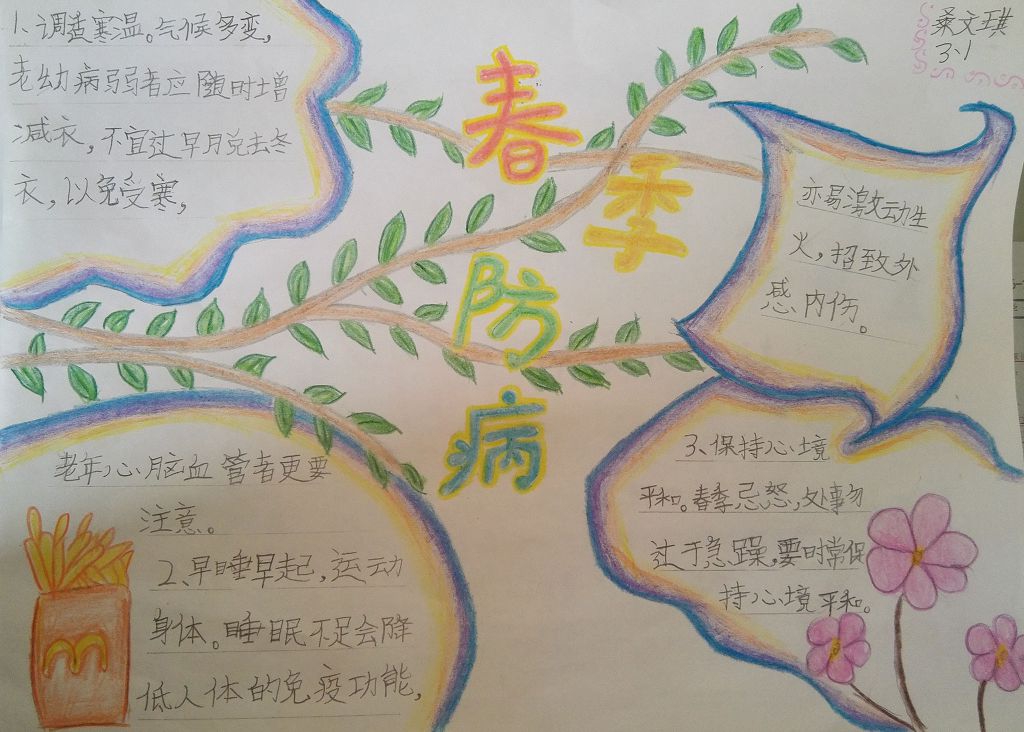 1、调适寒温。气候多变,
老幼病弱者应随时增
减衣,不宜过早月兑去冬
衣,以免受寒,
老年心脑血管者更要
注意。
2、早睡早起,运动
身体。睡眠不足会降
低人体的免疫功能,
春季防病
桑文琪
3.1
亦易激动生
火,招致外
感内伤。
3、保持心境
平和。春季忌怒,处事勿
过于急躁,要时常保
持心境平和。